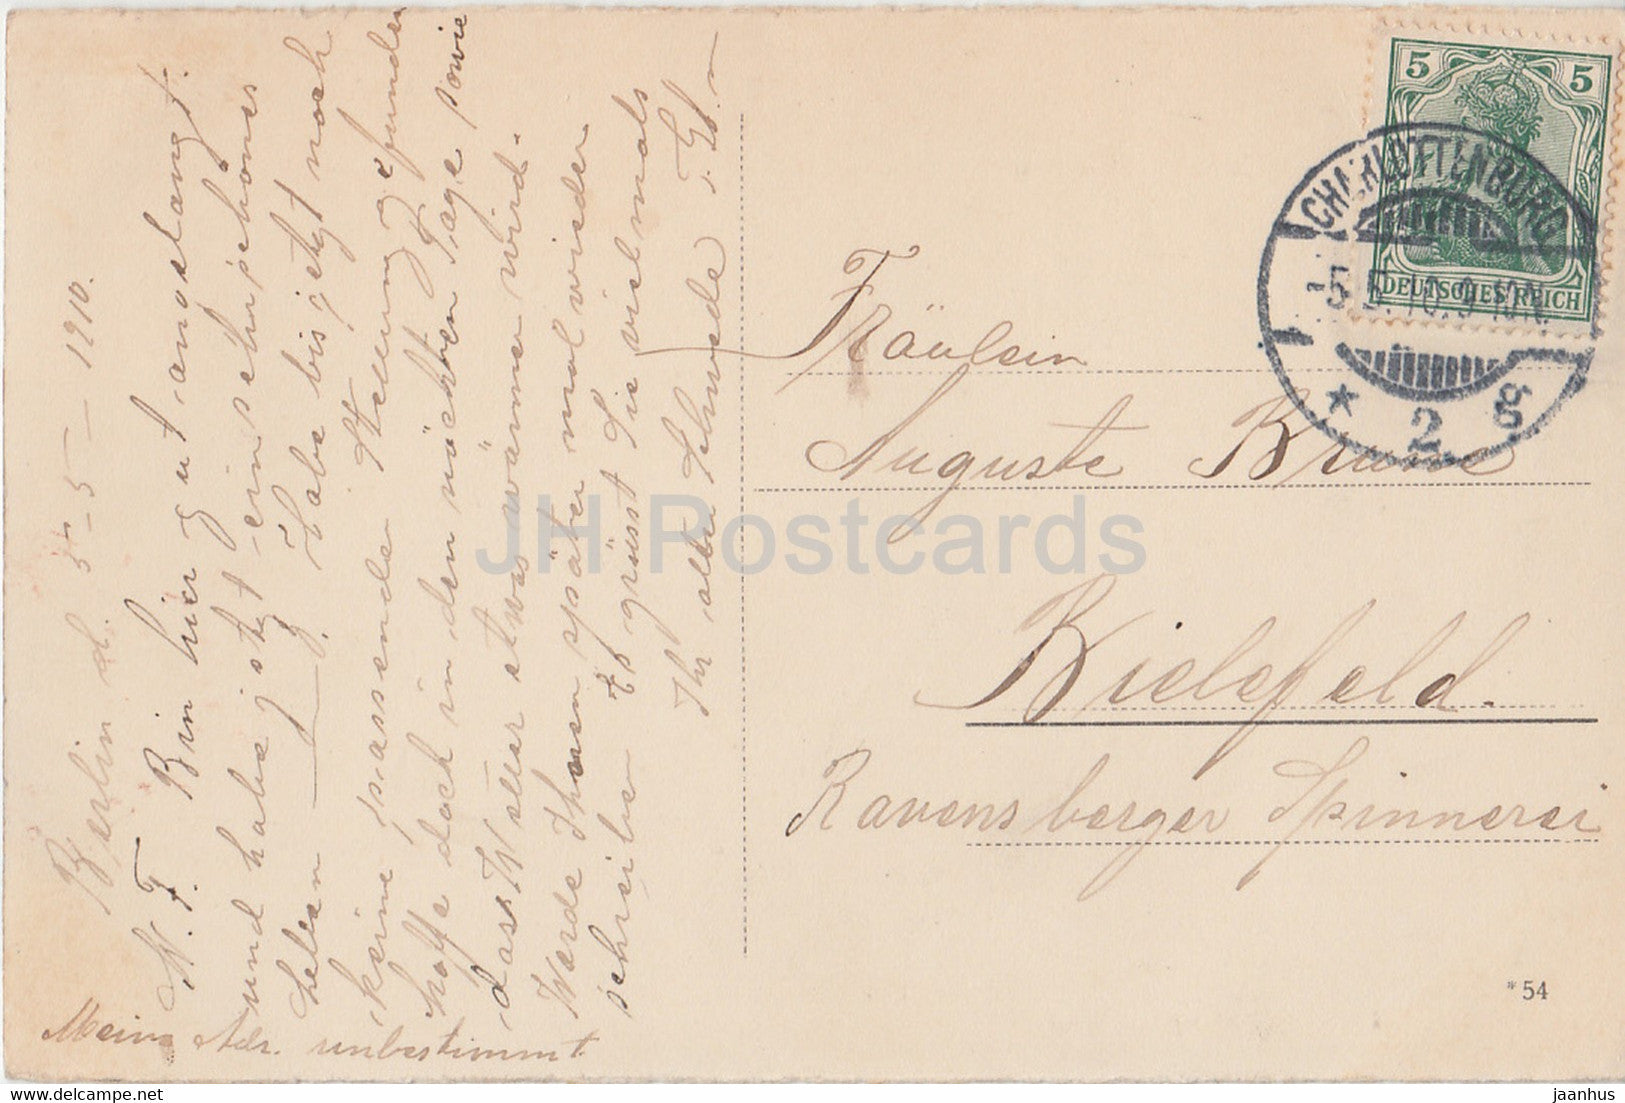 Berlin d. 5t - 5 - 1910.
N. F. Bin hier gut angelangt.
und habe jetzt ein sehr schönes
Leben
Habe bis jetzt noch
keine passende Stellung gefunden
hoffe doch in den nächsten Tage sowie
dass Wetter etwas wärmer wird.
Werde Ihnen später mal wieder
schreiben Es grüsst Sie vielmals
Ihr alter Schwede
Meine Adr. unbestimmt
5 5
DEUTSCHES REICH
CHARLOTTENBURG
-5.5.10.9-10N.
* 2 g
Fräulein
Auguste Brune
Bielefeld.
Ravensberger Spinnerei
*54
JH Postcards
delcampe.net
jaanhus